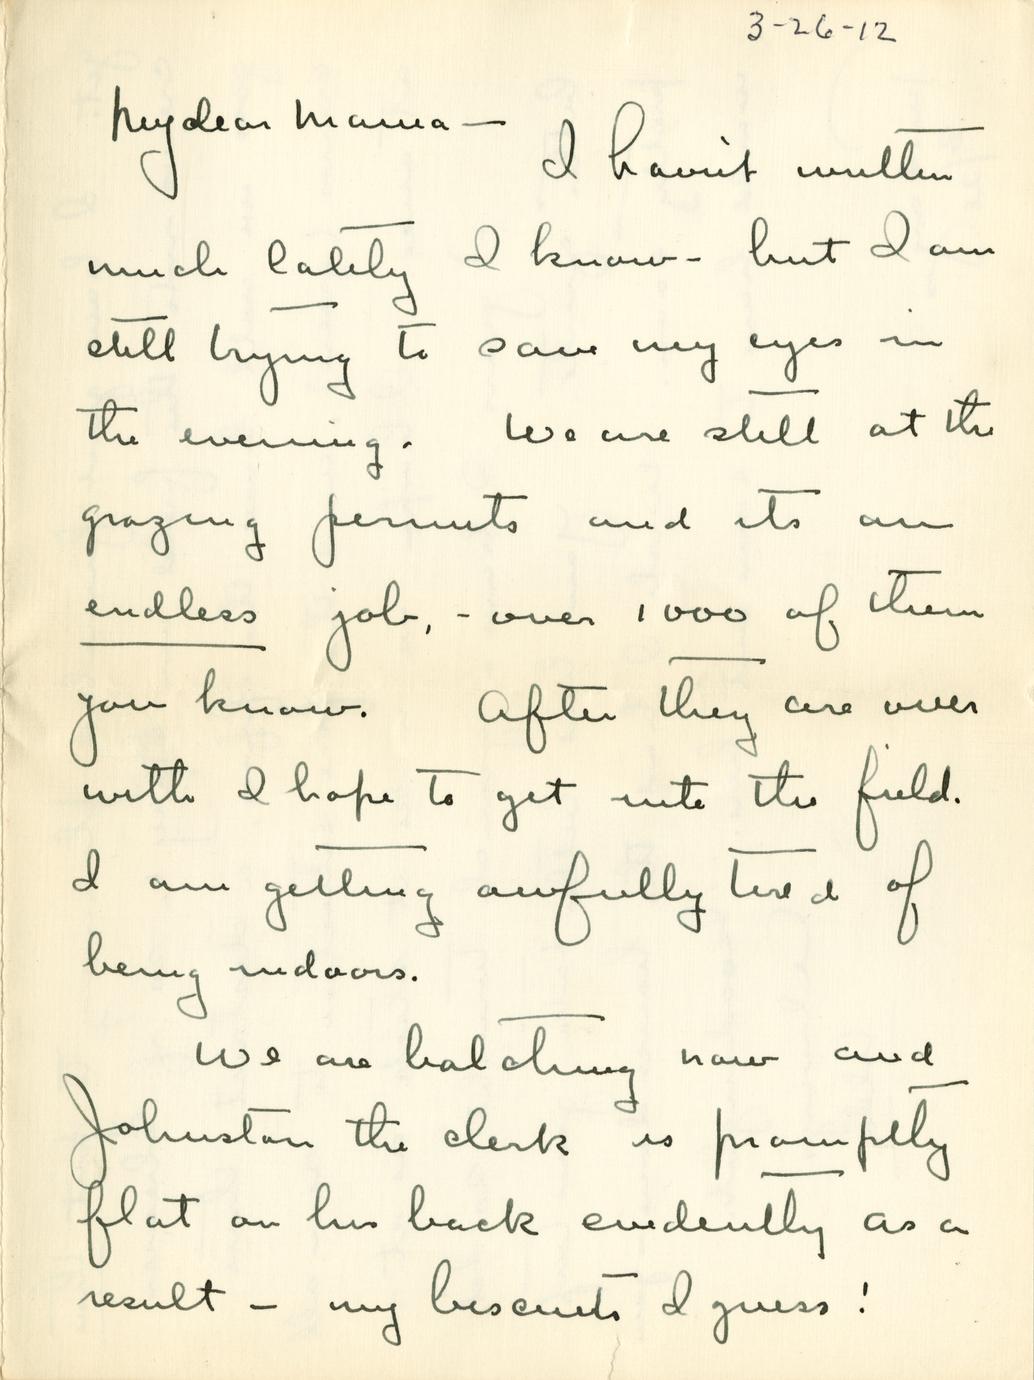 3-26-12
My dear Mama —
I havn't written
much lately I know - but I am
still trying to save my eyes in
the evening. We are still at the
grazing permits and its an
endless job, - over 1000 of them
you know. After they are over
with I hope to get into the field.
I am getting awfully tired of
being indoors.
We are batching now and
Johnston the clerk is promptly
flat on his back evidently as a
result — my biscuits I guess!